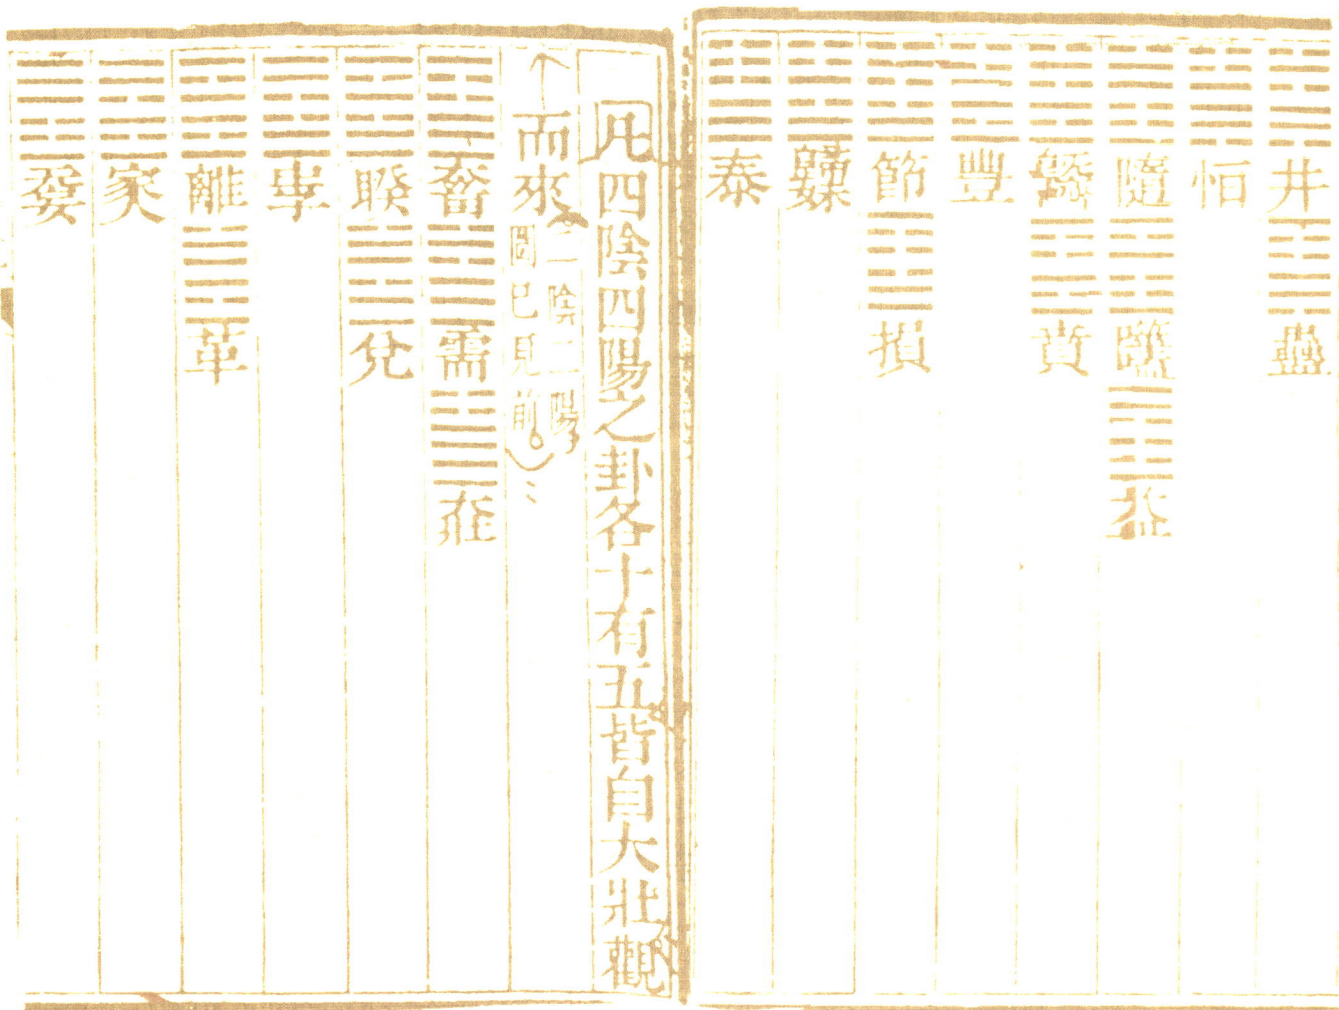 井 蠱
恒
隨 噬嗑 益
既濟 賁
豐
節 損
歸妹
泰
凡四陰四陽之卦各十有五皆自大壯觀
而來
二陰二陽
圖已見前
大畜 需 大壯
睽 兌
中孚
離 革
家人
无妄